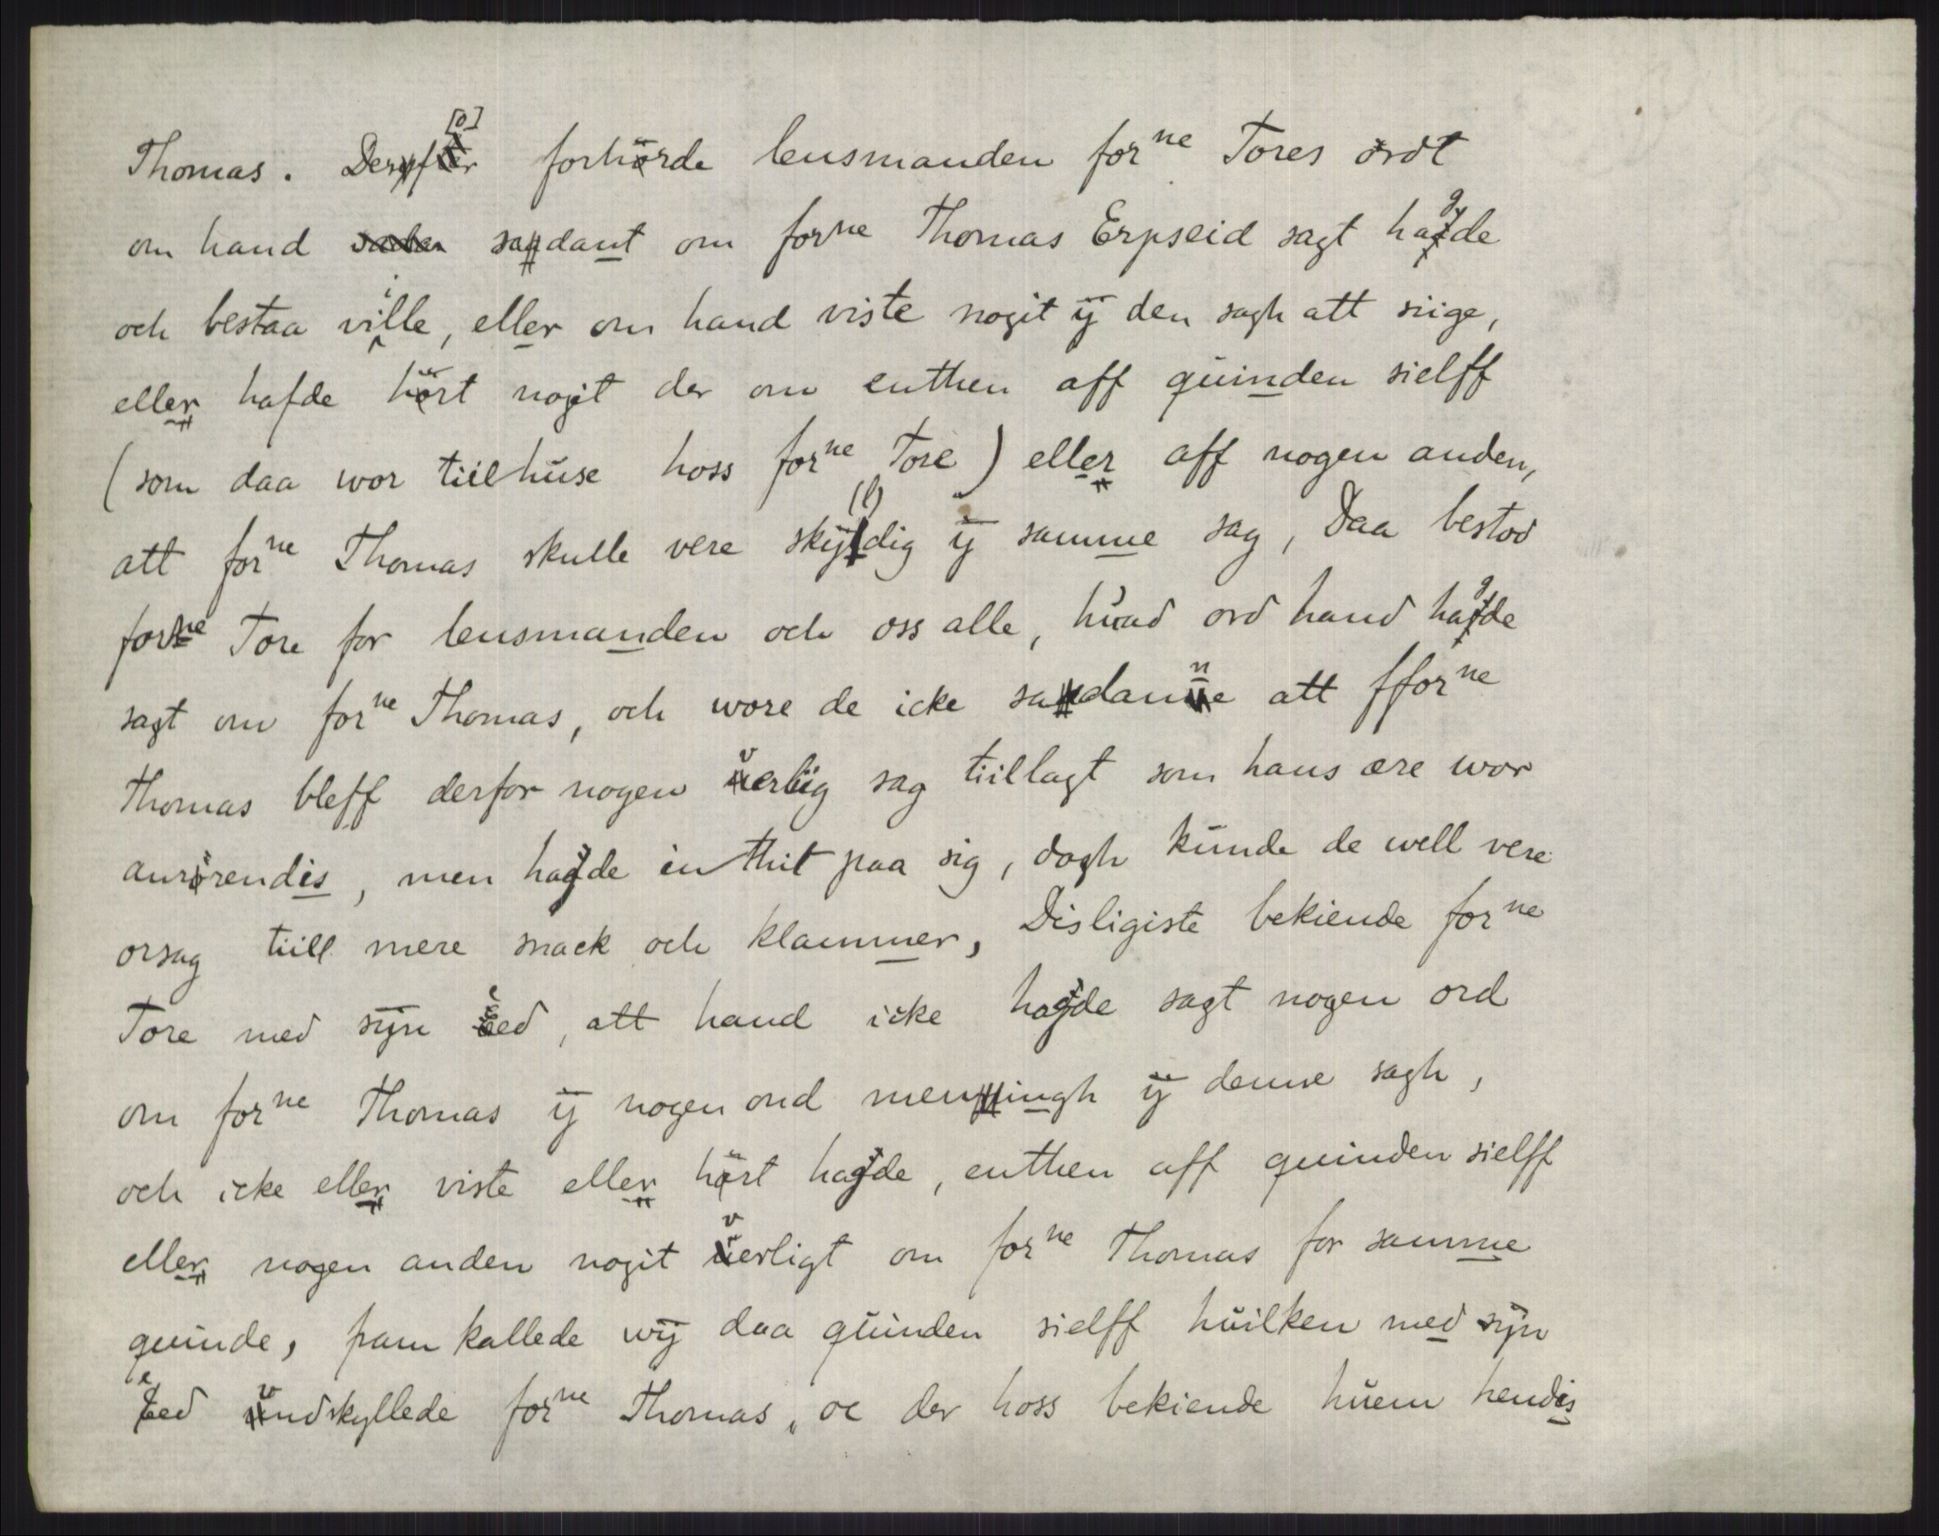 Thomas. Derpfor forhörde lensmanden for^ne Tores ordt
om hand sadant om for^ne Thomas Erpseid sagt hagde
och bestaa ville, eller om hand viste nogit ÿ den sagh att siige,
eller hafde hört nogit der om enthen aff quinden sielff
(som daa wor tiilhuse hoss for^ne Tore) eller aff nogen anden,
att for^ne Thomas skulle vere skÿ(l)dig ÿ samme sag, Daa bestod
for^ne Tore for lensmanden och oss alle, huad ord hand hagde
sagt om for^ne Thomas, och wore de icke sadanne att ffor^ne
Thomas bleff derfor nogen verliig sag tiillagt som hans ære wor
anrörendis, men hagde inthit paa sig, dogh kunde de well vere
orsag tiill mere snack och klammer, Disligiste bekiende for^ne
Tore med sÿn eed, att hand icke hagde sagt nogen ord
om for^ne Thomas ÿ nogen ond meningh ÿ denne sagh,
och icke eller viste eller hört hagde, enthen aff quinden sielff
eller nogen anden nogit verligt om for^ne Thomas for samme
quinde, fram kallede wÿ daa quinden sielff huilken med sÿn
eed vndskyllede for^ne Thomas, oc der hoss bekiende huem hendis